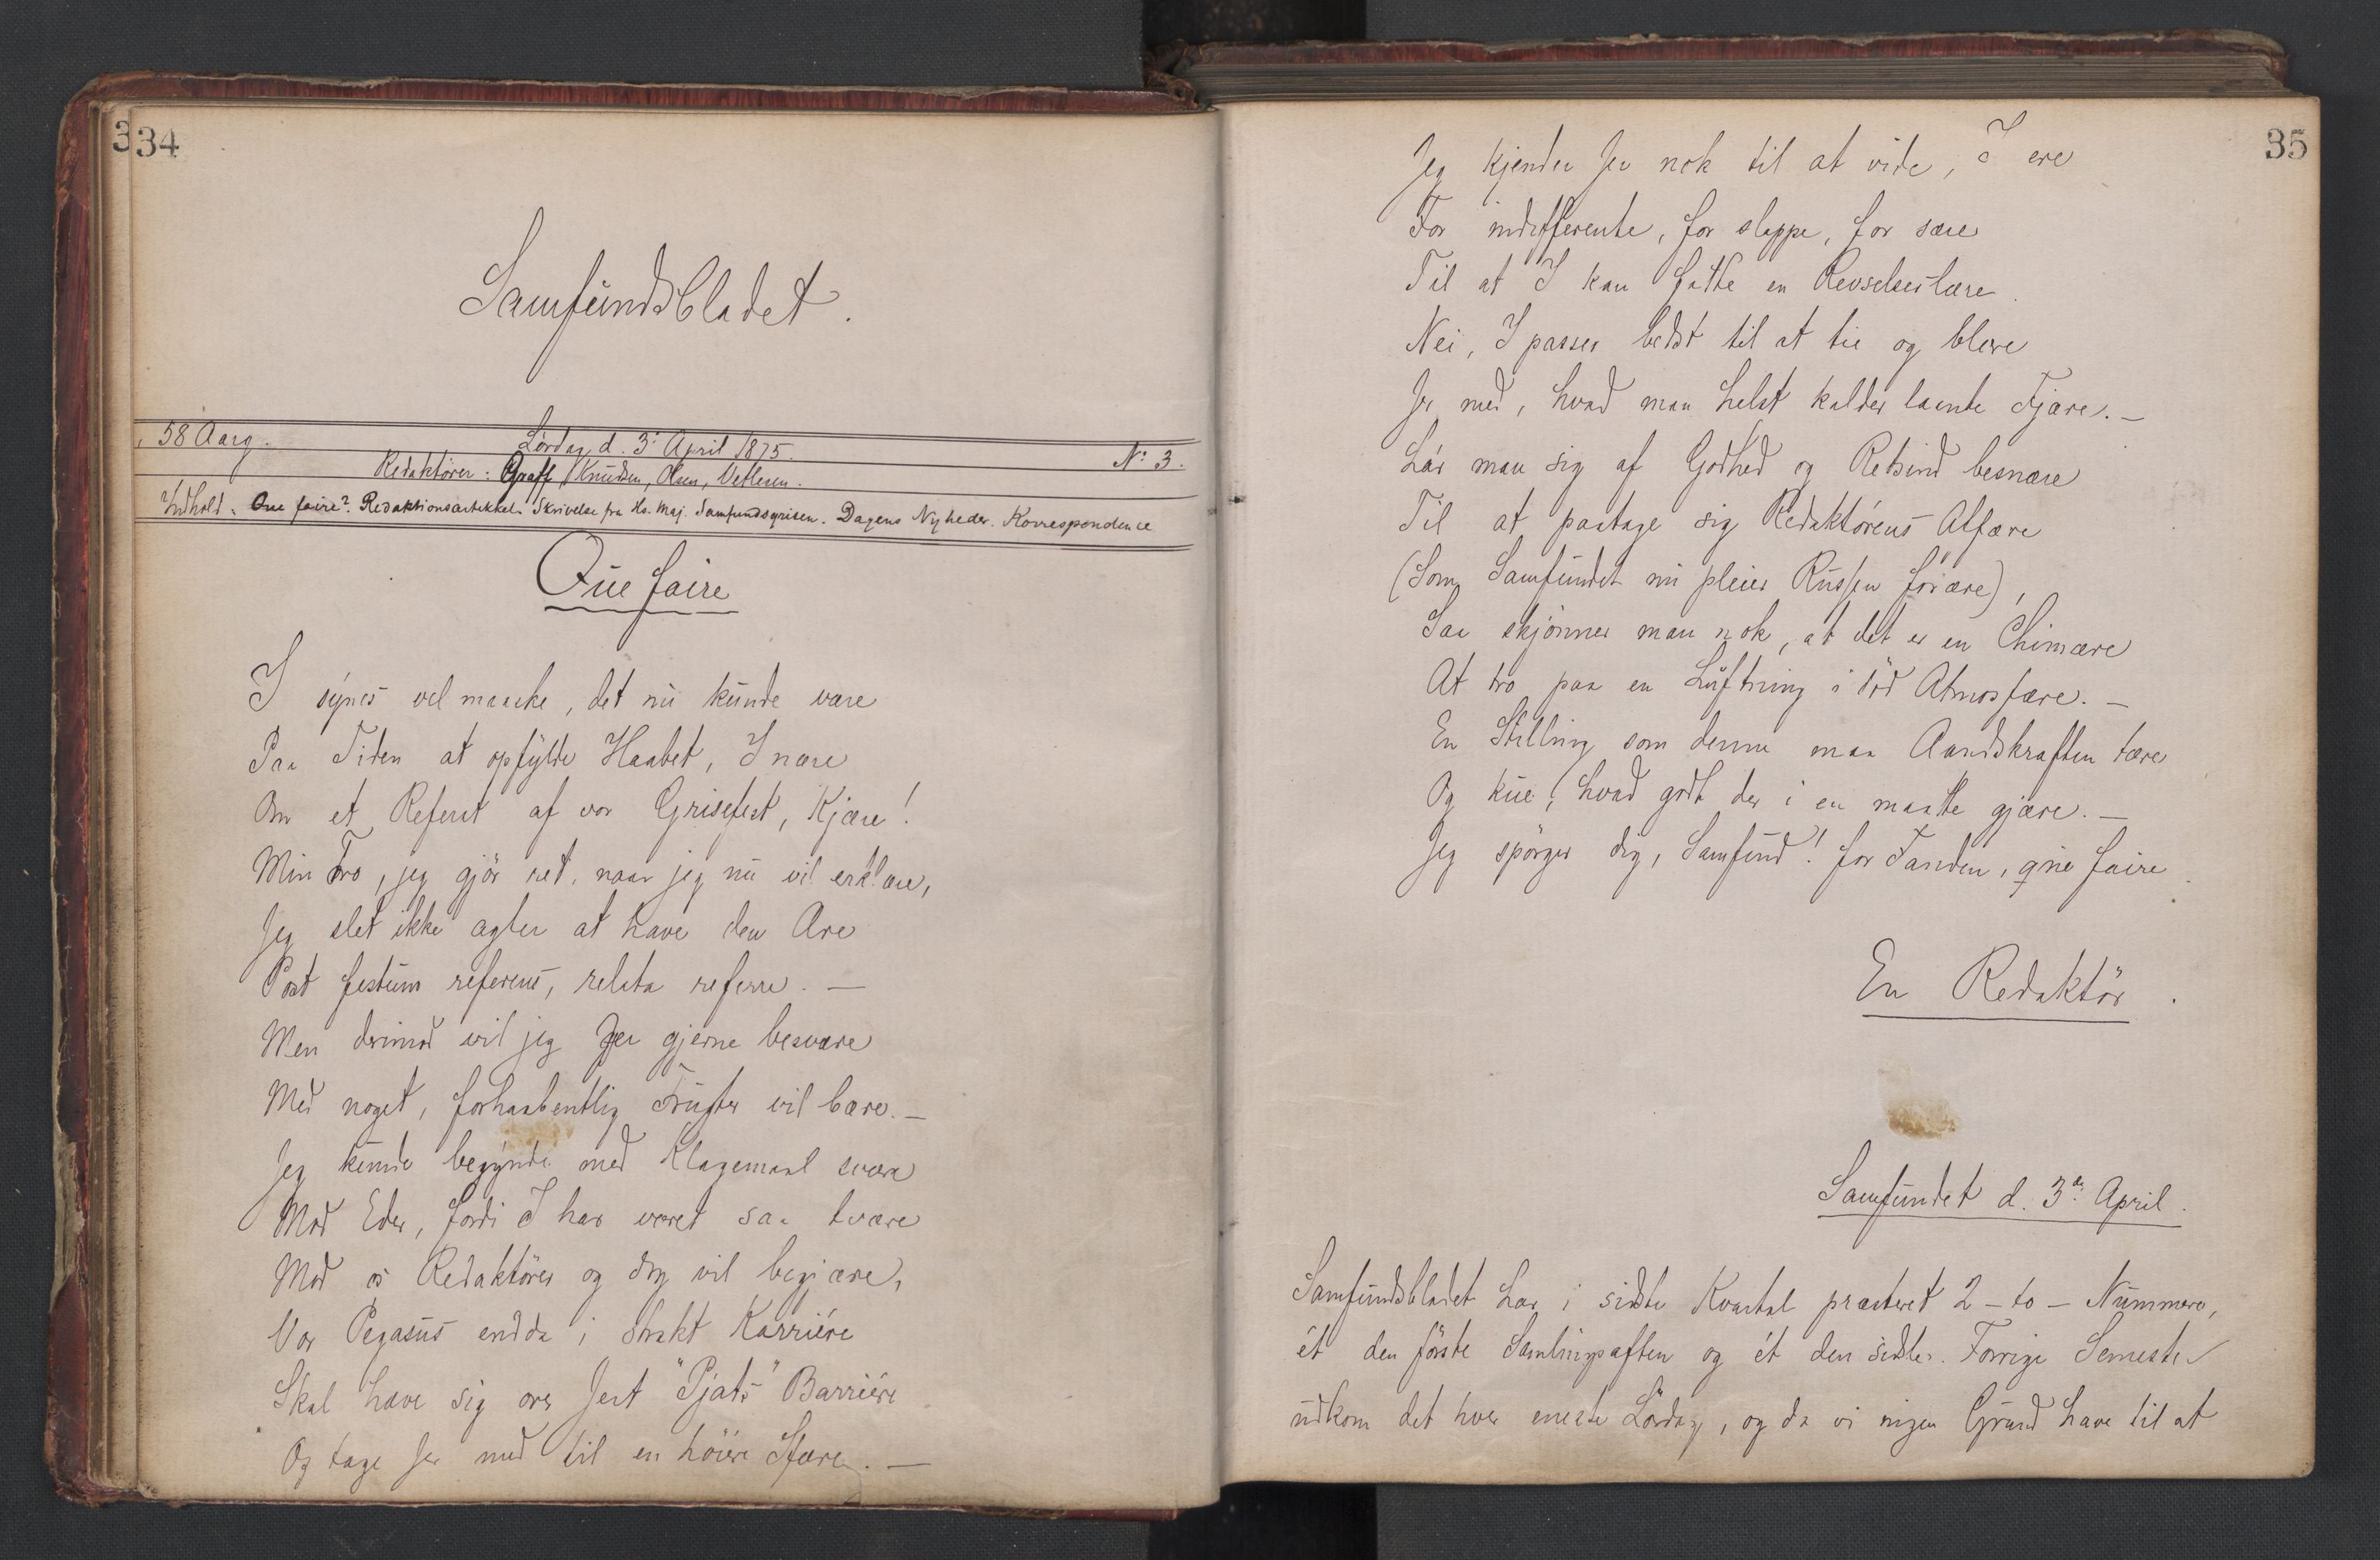 34
Samfundsbladet.
58 Aarg.
Lördag d. 3' April 1875.
No 3.
Redaktörer: Graff, Knudsen, Olsen, Vetlesen.
Indhold. Que faire? Redaktionsartikkel. Skrivelse fra Hs. Maj. Samfundsgrisen. Dagens Nyheder. Korrespondence
Que faire
I synes vel maaske, det nu kunde være
Paa Tiden at opfylde Haabet, I nære
Om et Referat af vor Grisefest, Kjære!
Min Tro, jeg gjör ret, naar jeg nu vil erklære,
Jeg slet ikke agter at have den Ære
Post festum referens, relata referre. —
Men derimod vil jeg Jer gjerne besvære
Med noget, forhaabentlig Frugter vil bære. —
Jeg kunde begynde med Klagemaal svære
Mod Eder, fordi I har været saa tvære
Mod os Redaktörer og dog vil begjære,
Vor Pegasus endda i strakt Karriére
Skal hæve sig over Jert "Pjats" Barriére
Og tage Jer med til en höiere Sfære. —
35
Jeg kjender Jer nok til at vide, I ere
For indifferente, for slappe, for sære
Til at I kan fatte en Revselseslære.
Nei, I passer bedst til at tie og blere
Jer med, hvad man helst kalder laante Fjære. —
Lar man sig af Godhed og Retsind besnære
Til at paatage sig Redaktörens Affære
(Som Samfundet nu pleier Russen forære),
Saa skjönner man nok, at det er en Chimære
At tro paa en Luftning i död Atmosfære. —
En Stilling som denne maa Aandskraften tære
Og kue, hvad godt der i en maatte gjære. —
Jeg spörger dig, Samfund! for Fanden, que faire
En Redaktör.
Samfundet d. 3de April.
Samfundsbladet har i sidste Kvartal præsteret 2 – to – Nummere,
ét den förste Samlingsaften og ét den sidste. Forrige Semester
udkom det hver eneste Lördag, og da vi ingen Grund have til at